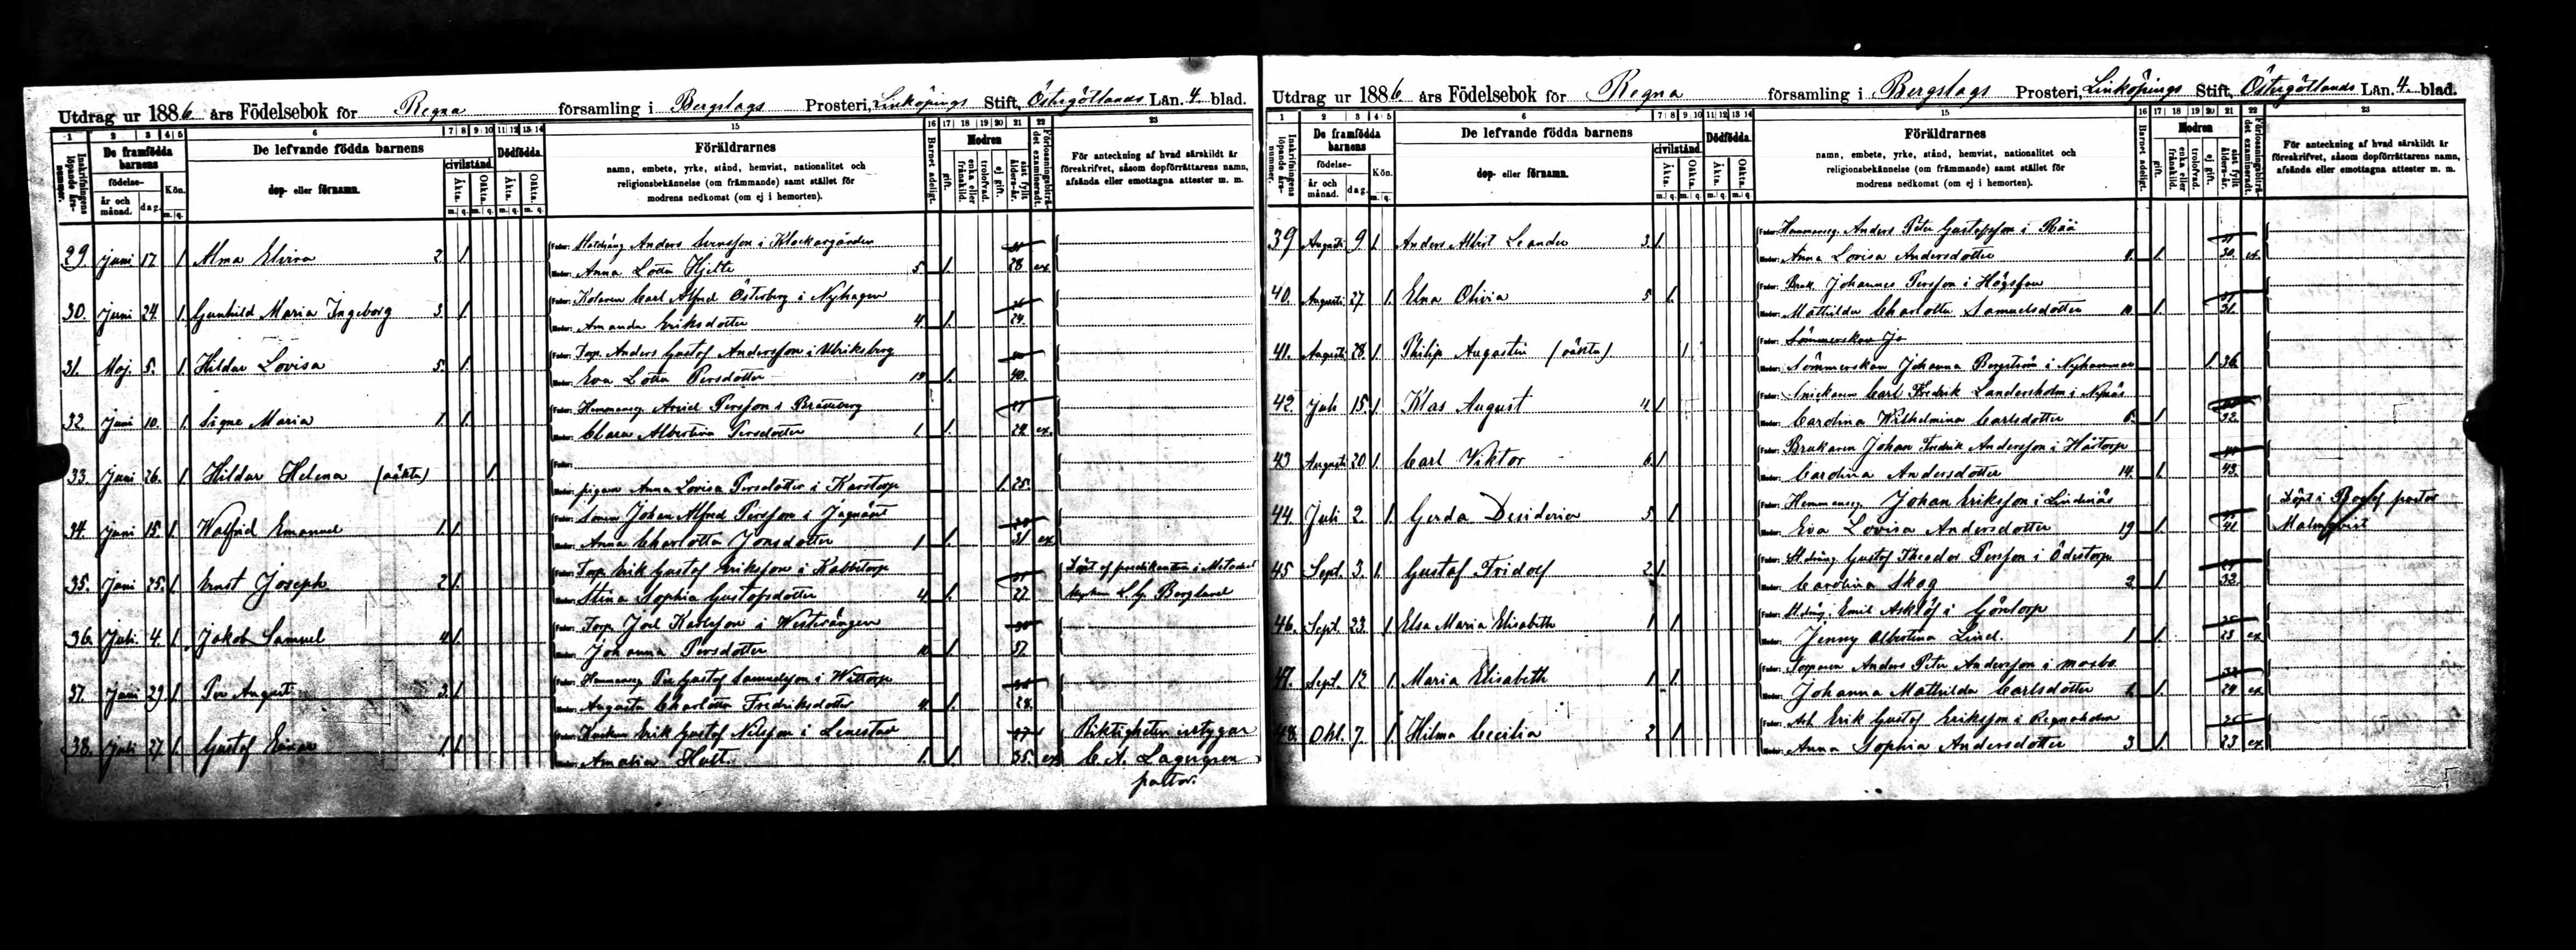 Utdrag ur 1886 års Födelsebok för Regna församling i Bergslags Prosteri, Linköpings Stift, Östergötlands Län. 4. blad.
1 2 3 4 5 6 7 8 9 10 11 12 13 14 15 16 17 18 19 20 21 22 23
Inskrifningens löpande års-nummer.
De framfödda barnens
födelse-
år och månad.
dag.
Kön.
m. q.
De lefvande födda barnens
dop- eller förnamn.
civilstånd.
Äkta.
Oäkta.
m. q. m. q.
Dödfödda.
Äkta.
Oäkta.
m. q. m. q.
Föräldrarnes
namn, embete, yrke, stånd, hemvist, nationalitet och
religionsbekännelse (om främmande) samt stället för
modrens nedkomst (om ej i hemorten).
Barnet adeligt.
Modren
gift.
enka eller frånskild.
trolofvad.
ej gift.
sist fyllt ålders-år.
Förlossningsbiträdet examineradt.
För anteckning af hvad särskildt är
föreskrifvet, såsom dopförrättarens namn,
afsända eller emottagna attester m. m.
Fader: Anders Svensson i Klockargården
29. Juni 17 1 Alma Elvira 2 1
Moder: Anna Lotta Hjelte 5 1. 28 ex
Fader: Kolaren Carl Alfred Österberg i Nyhagen
30. Juni 24. 1. Gunhild Maria Ingeborg 3. 1
Moder: Amanda Eriksdotter 4. 1. 24.
Fader: Torp. Anders Gustof Andersson i Ulriksberg
31. Maj. 5. 1. Hildur Lovisa 5. 1.
Moder: Eva Lotta Persdotter 1. 40.
Fader: Hemmanseg. Arvid Persson i
32. Juni 10. 1. Signe Maria 1. 1.
Moder: Clara Albertina Persdotter 1. 1. 24 ex.
Fader:
33. Juni 26. 1. Hildur Helena (oäkta) 1.
Moder: pigan Anna Lovisa Persdotter i Karstorp 1. 25.
Fader: Johan Alfred Persson i
34. Juni 15. 1. Walfrid Emanuel 1. 1
Moder: Anna Charlotta Jonsdotter 1 1. 31 ex
Fader: Torp. Erik Gustof Eriksson i Kabbetorp
35. Juni 25. 1. Ernst Joseph 2 1.
Moder: Stina Sophia Gustofsdotter 4 1. 27.
Döpt af predikanten i Metodist
Fader: Torp. Joel Karlsson i Westerängen
36. Juli. 4. 1. Jakob Samuel 4 1.
Moder: Johanna Persdotter 1. 37.
Fader: Hemmanseg. Per Gustof Samuelsson i Wittorp
37. Juni 29 1. Per August 3. 1
Moder: Augusta Charlotta Fredriksdotter 4. 1. 28.
Fader: Erik Gustof Nilsson i
38. Juli 27. 1. Gustof Einar 1. 1.
Moder: Amalia Hult. 1. 1. 35. ex
Riktigheten intygar
C. A. Lagergren
pastor.
Utdrag ur 1886 års Födelsebok för Regna församling i Bergslags Prosteri, Linköpings Stift, Östergötlands Län. 4. blad.
1 2 3 4 5 6 7 8 9 10 11 12 13 14 15 16 17 18 19 20 21 22 23
Inskrifningens löpande års-nummer.
De framfödda barnens
födelse-
år och månad.
dag.
Kön.
m. q.
De lefvande födda barnens
dop- eller förnamn.
civilstånd.
Äkta.
Oäkta.
m. q. m. q.
Dödfödda.
Äkta.
Oäkta.
m. q. m. q.
Föräldrarnes
namn, embete, yrke, stånd, hemvist, nationalitet och
religionsbekännelse (om främmande) samt stället för
modrens nedkomst (om ej i hemorten).
Barnet adeligt.
Modren
gift.
enka eller frånskild.
trolofvad.
ej gift.
sist fyllt ålders-år.
Förlossningsbiträdet examineradt.
För anteckning af hvad särskildt är
föreskrifvet, såsom dopförrättarens namn,
afsända eller emottagna attester m. m.
Fader: Hemmanseg. Anders Peter Gustafsson i Råå
39 Augusti 9 1. Anders Albert Leander 3. 1.
Moder: Anna Lovisa Andersdotter 1. 30. ex.
Fader: Bruk. Johannes Persson i Högsfon
40. Augusti 27. 1. Elna Olivia 5 1.
Moder: Mathilda Charlotta Samuelsdotter 10 1. 31.
Fader: Sömmerskan Jo
41. Augusti 28. 1. Philip Augustin (oäkta). 1
Moder: Sömmerskan Johanna Bergström i Nyhammar 1. 36.
Fader: Snickaren Carl Fredrik Landersholm i
42. Juli 15 1. Klas August 4 1
Moder: Carolina Wilhelmina Carlsdotter 6. 1. 32.
Fader: Brukaren Johan Fredrik Andersson i Håstorp
43 Augusti 20 1. Carl Viktor 6 1
Moder: Carolina Andersdotter 14. 1. 43.
Fader: Hemmanseg. Johan Eriksson i Lindenäs
44. Juli 2. 1 Gerda Desideria 5 1
Moder: Eva Lovisa Andersdotter 19 1. 41.
Döpt i pastor
Malmqvist
Fader: Gustof Theodor Persson i Ödestorp
45 Sept. 3. 1. Gustaf Fridolf 2 1.
Moder: Carolina Skog 2. 1. 32.
Fader: Emil Asklöf i Göntorp
46. Sept. 23. 1 Elsa Maria Elisabeth 1 1
Moder: Jenny Albertina Lind. 1 1. 23 ex
Fader: Torparen Anders Peter Andersson i Mosbo
47. Sept. 12 1. Maria Elisabeth 1 1
Moder: Johanna Mathilda Carlsdotter 1. 29 ex
Fader: Erik Gustof Eriksson i Regnaholm
48. Okt. 7. 1. Hilma Cecilia 2 1
Moder: Anna Sophia Andersdotter 3 1. 23 ex